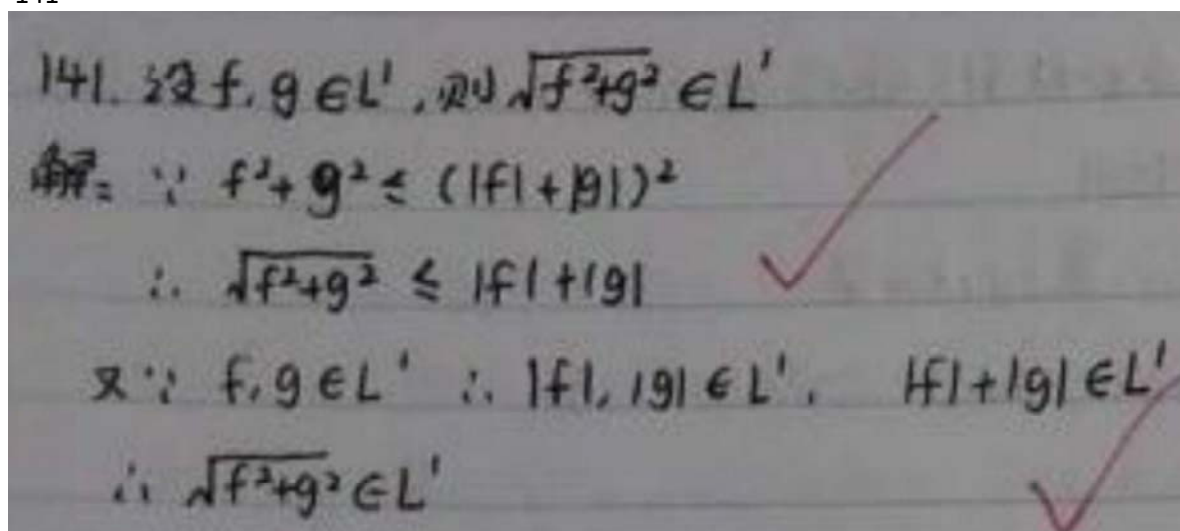 141
141. 设f, g∈L', 则√(f²+g²)∈L'
解: ∵ f²+g²≤(|f|+|g|)²
∴ √(f²+g²) ≤ |f|+|g|
又∵ f, g∈L' ∴ |f|, |g|∈L', |f|+|g|∈L'
∴ √(f²+g²)∈L'